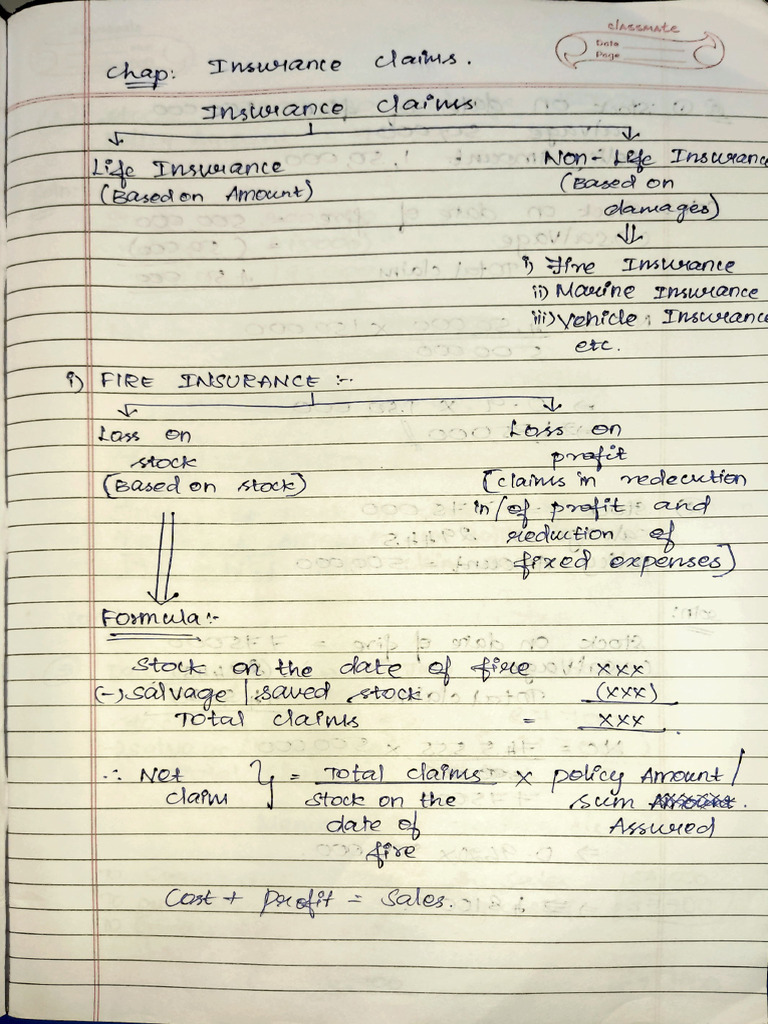 classmate
Date
Page
Chap: Insurance claims.
Insurance claims
Life Insurance
(Based on Amount)
Non-Life Insurance
(Based on
damages)
i) Fire Insurance
ii) Marine Insurance
iii) Vehicle Insurance
etc.
i) FIRE INSURANCE :-
Loss on
stock
(Based on stock)
Loss on
profit
[claims in redecution
in/of profit and
reduction of
fixed expenses]
Formula:-
Stock on the date of fire xxx
(-) Salvage / saved stock (xxx)
Total claims = xxx
∴ Net claim } = Total claims / Stock on the date of fire × policy Amount / sum Assured
Cost + Profit = Sales.